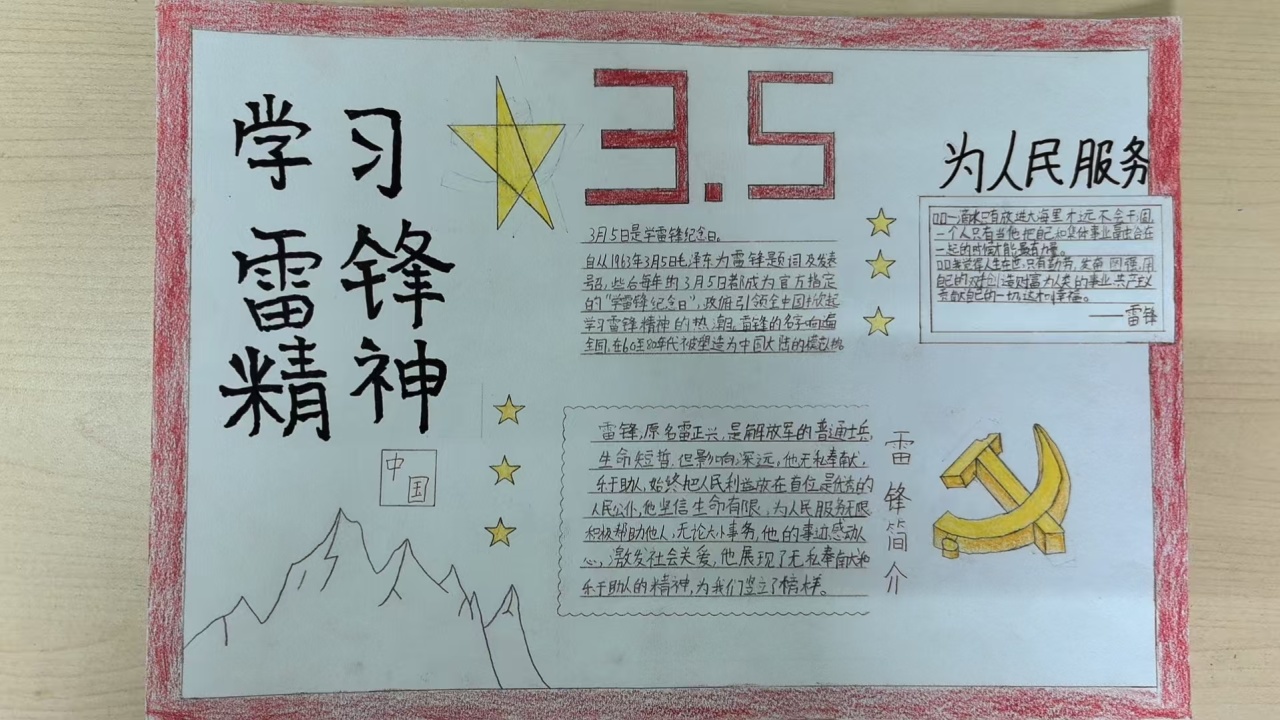 学习
雷锋
精神
中
国
3.5
3月5日是学雷锋纪念日。
自从1963年3月5日毛泽东为雷锋题词及发表
号召,些后每年的3月5日都成为官方指定
的“学雷锋纪念日”,政府引领全中国掀起
学习雷锋精神的热潮。雷锋的名字响遍
全国,在60至80年代不被塑造为中国大陆的模范
为人民服务
一滴水只有放进大海里才远不会干固,
一个人只有当他把自己和集体事业融合在
一起的时候才能最有力量。
人生在世,只有勤劳,发奋图强,用
自己的双手创造财富为人类的事业共产主义
贡献自己的一切这才幸福。
——雷锋
雷锋,原名雷正兴,是解放军的普通士兵,
生命短暂,但影响深远,他无私奉献,
乐于助人,始终把人民利益放在首位是优秀的
人民公仆,他坚信生命有限,为人民服务无限
积极帮助他人,无论大小事务,他的事迹感动人
心,激发社会关爱,他展现了无私奉献和
乐于助人的精神,为我们竖立了榜样。
雷锋简介